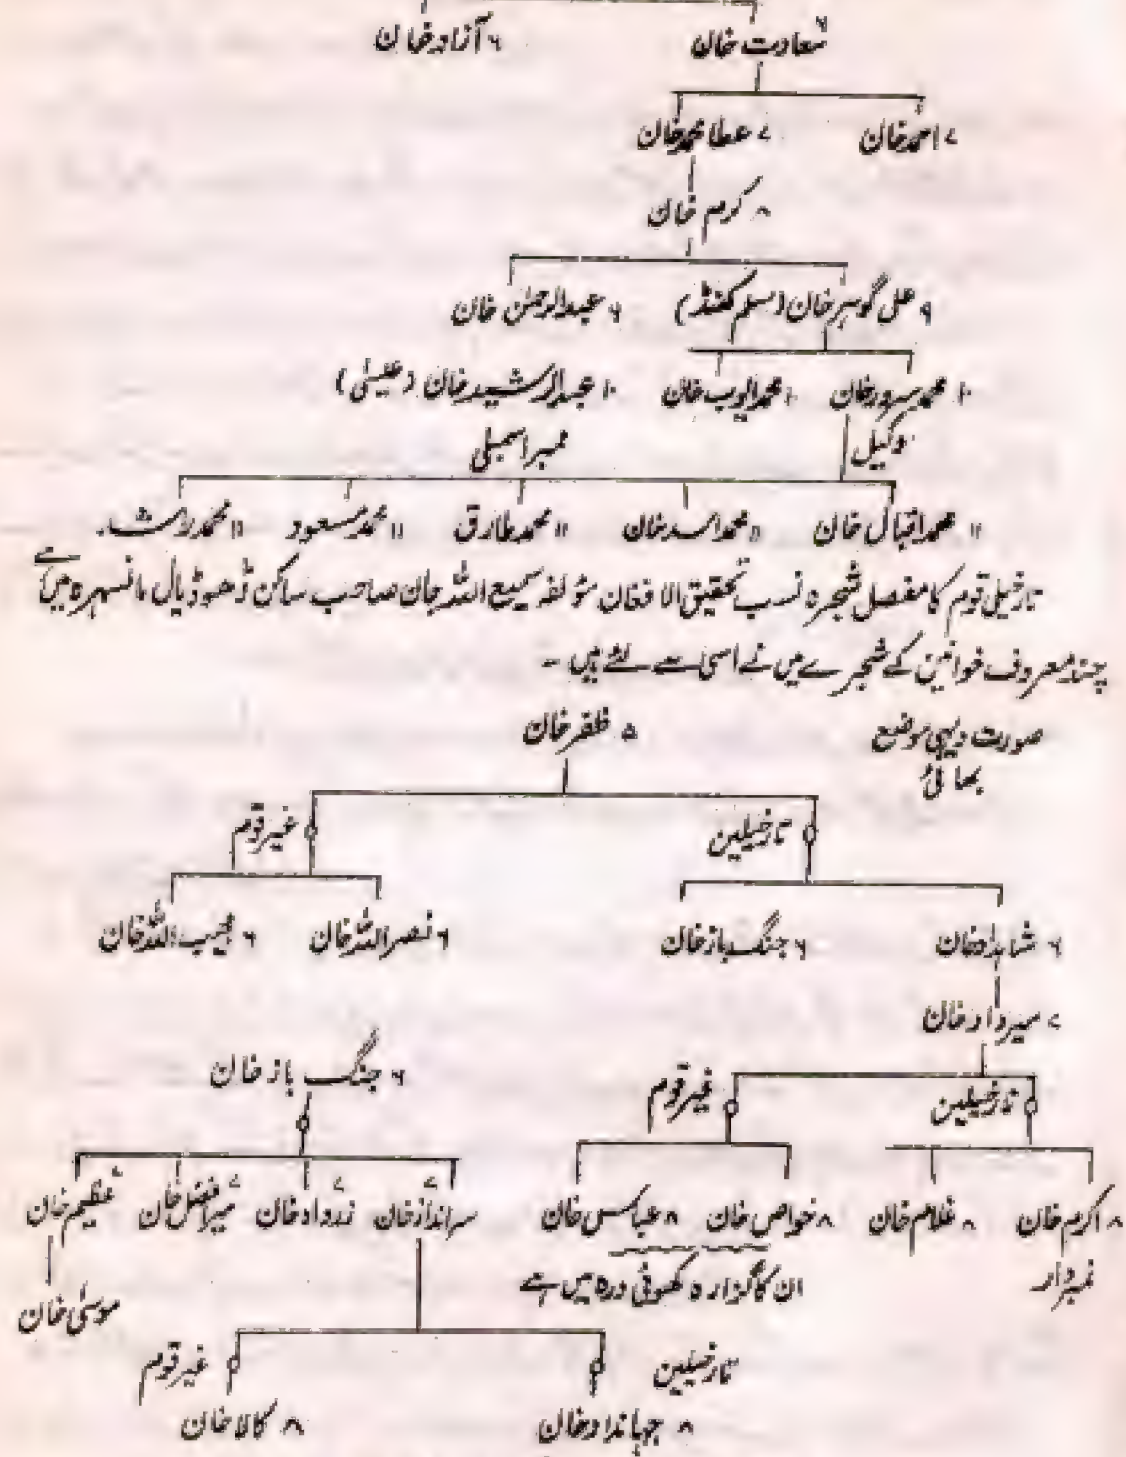 ۶ سعادت خان ۶ آزاد خان
۷ احمد خان ۷ عطا محمد خان
۸ کرم خان
۹ علی گوہر خان (مسلم کھنڈ) ۹ عبدالرحمٰن خان
۱۰ محمد سرور خان ۱۰ محمد ایوب خان ۱۰ عبدالرشید خان (علیٹی)
وکیل ممبر اسمبلی
۱۱ محمد اقبال خان ۱۱ محمد اسد خان ۱۱ محمد طارق ۱۱ محمد مسعود ۱۱ محمد راشد
تارخیلی قوم کا مفصل شجرہ نسب تحقیق الافغان مؤلفہ سمیع اللہ جان صاحب ساکن ڈھوڈیال مانسہرہ میں ہے
چند معروف خوانین کے شجرے میں نے اسی سے لئے ہیں -
صورت دیہی موضع ۵ ظفر خان
بھائی
تارخیلین غیر قوم
۶ شاہداد خان ۶ جنگ باز خان ۶ نصراللہ خان ۶ مجیب اللہ خان
۷ میرداد خان
۶ جنگ باز خان
تارخیلین غیر قوم
۸ اکرم خان ۸ غلام خان ۸ خواص خان ۸ عباس خان ۷ سرانداز خان ۷ زرداد خان ۷ میر افضل خان ۷ عظیم خان
نمبردار ان کا گزارہ کھوئی درہ میں ہے
موسیٰ خان
تارخیلین غیر قوم
۸ جہانداد خان ۸ کالا خان